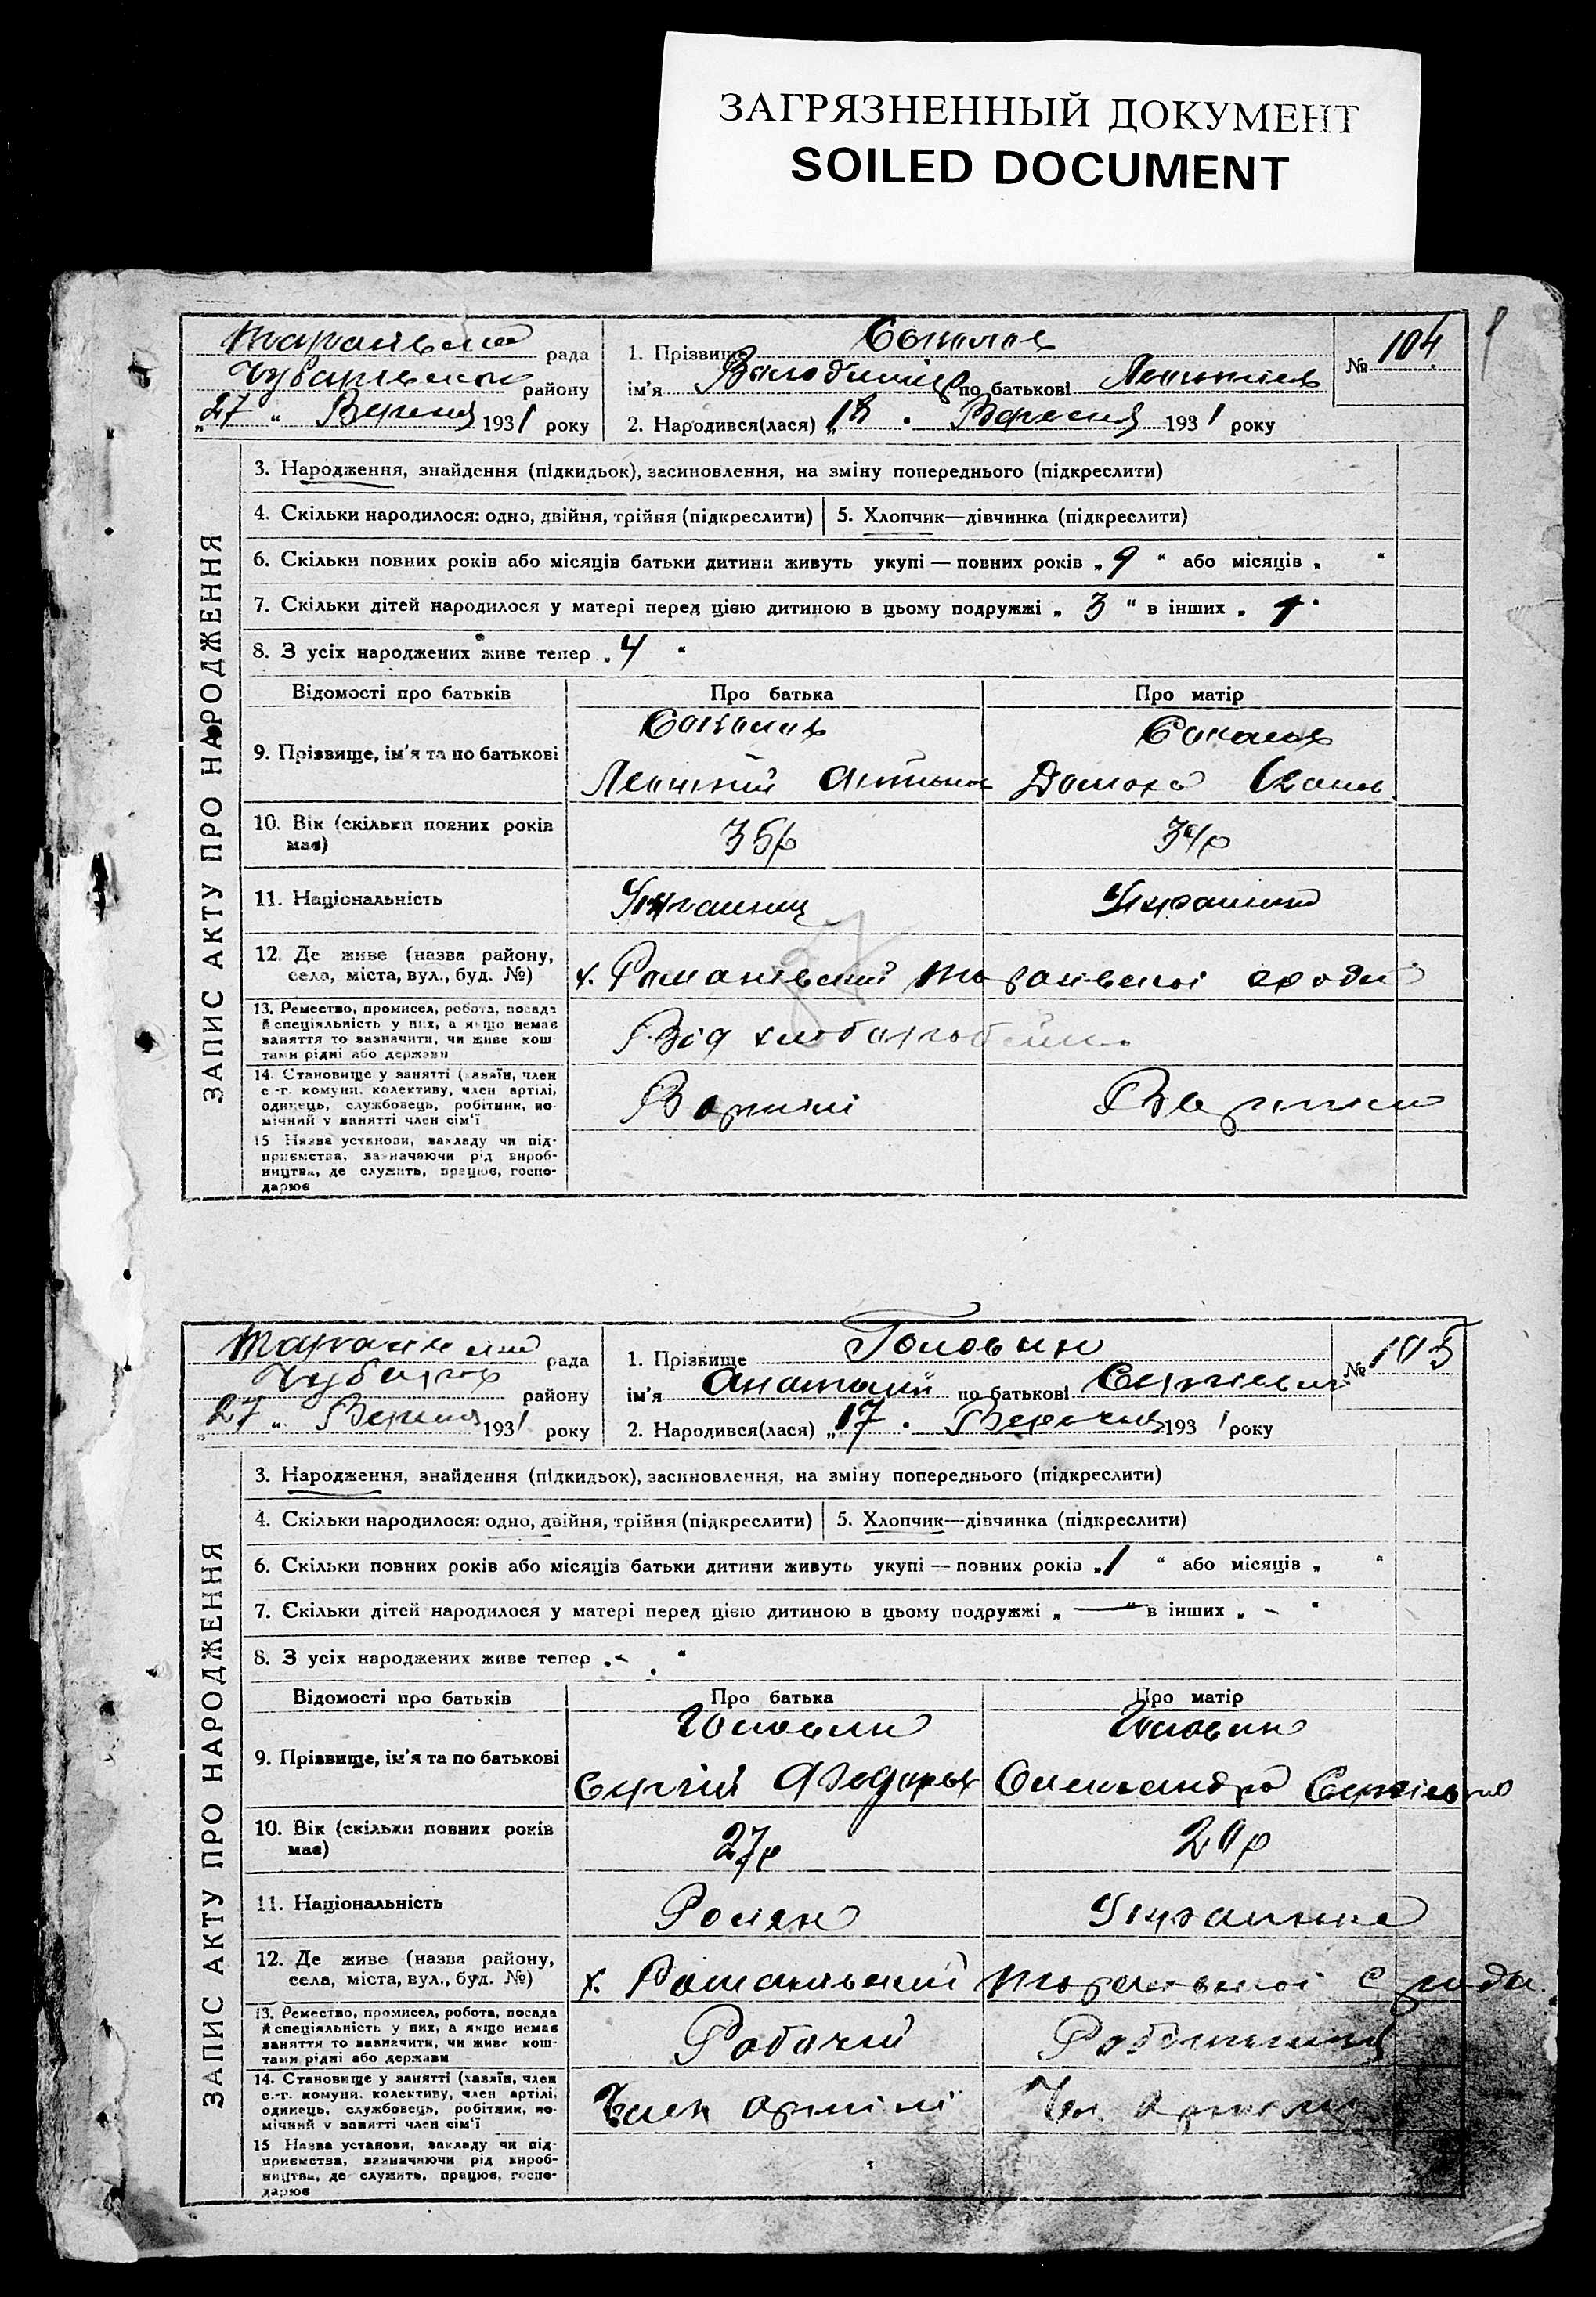 ЗАГРЯЗНЕННЫЙ ДОКУМЕНТ
SOILED DOCUMENT
рада
району
„27 “ 1931 року
1. Прізвище Соколов
ім'я Володимір по батькові
2. Народився(лася) „18 “ Вересня 1931 року
№ 104
ЗАПИС АКТУ ПРО НАРОДЖЕННЯ
3. Народження, знайдення (підкидьок), засиновлення, на зміну попереднього (підкреслити)
4. Скільки народилося: одно, двійня, трійня (підкреслити) 5. Хлопчик—дівчинка (підкреслити)
6. Скільки повних років або місяців батьки дитини живуть укупі — повних років „ 9 “ або місяців „ “
7. Скільки дітей народилося у матері перед цією дитиною в цьому подружжі „ 3 “ в інших „ 1 “
8. З усіх народжених живе тепер „ 4 “
Відомості про батьків Про батька Про матір
9. Прізвище, ім'я та по батькові
Соколов Соколов
10. Вік (скільки повних років має) 35р 34р
11. Національність Українец Українка
12. Де живе (назва району, села, міста, вул., буд. №) х. Романівский Таранівської с ради
13. Ремество, промисел, робота, посада й спеціяльність у них, а якщо немає заняття то зазначити, чи живе коштами рідні або держави
14. Становище у занятті (хазяїн, член с.-г. комуни, колективу, член артілі, одинець, службовець, робітник, помічний у занятті член сім'ї В артілі
15 Назва установи, закладу чи підприємства, зазначаючи рід виробництва, де служить, працює, господарює
рада
району
„27 “ 1931 року
1. Прізвище Головин
ім'я Анатолій по батькові Сергієвич
2. Народився(лася) „17 “ Вересня 1931 року
№ 105
ЗАПИС АКТУ ПРО НАРОДЖЕННЯ
3. Народження, знайдення (підкидьок), засиновлення, на зміну попереднього (підкреслити)
4. Скільки народилося: одно, двійня, трійня (підкреслити) 5. Хлопчик—дівчинка (підкреслити)
6. Скільки повних років або місяців батьки дитини живуть укупі — повних років „ 1 “ або місяців „ “
7. Скільки дітей народилося у матері перед цією дитиною в цьому подружжі „ — “ в інших „ - “
8. З усіх народжених живе тепер „ - “
Відомості про батьків Про батька Про матір
9. Прізвище, ім'я та по батькові
Головин Головин
Сергій Олександра Сергієвна
10. Вік (скільки повних років має) 27р
11. Національність Росиян Українка
12. Де живе (назва району, села, міста, вул., буд. №) х. Романівский Таранівської с ради
13. Ремество, промисел, робота, посада й спеціяльність у них, а якщо немає заняття то зазначити, чи живе коштами рідні або держави Робочий Робітниця
14. Становище у занятті (хазяїн, член с.-г. комуни, колективу, член артілі, одинець, службовець, робітник, помічний у занятті член сім'ї Член артілі Чл артілі
15 Назва установи, закладу чи підприємства, зазначаючи рід виробництва, де служить, працює, господарює